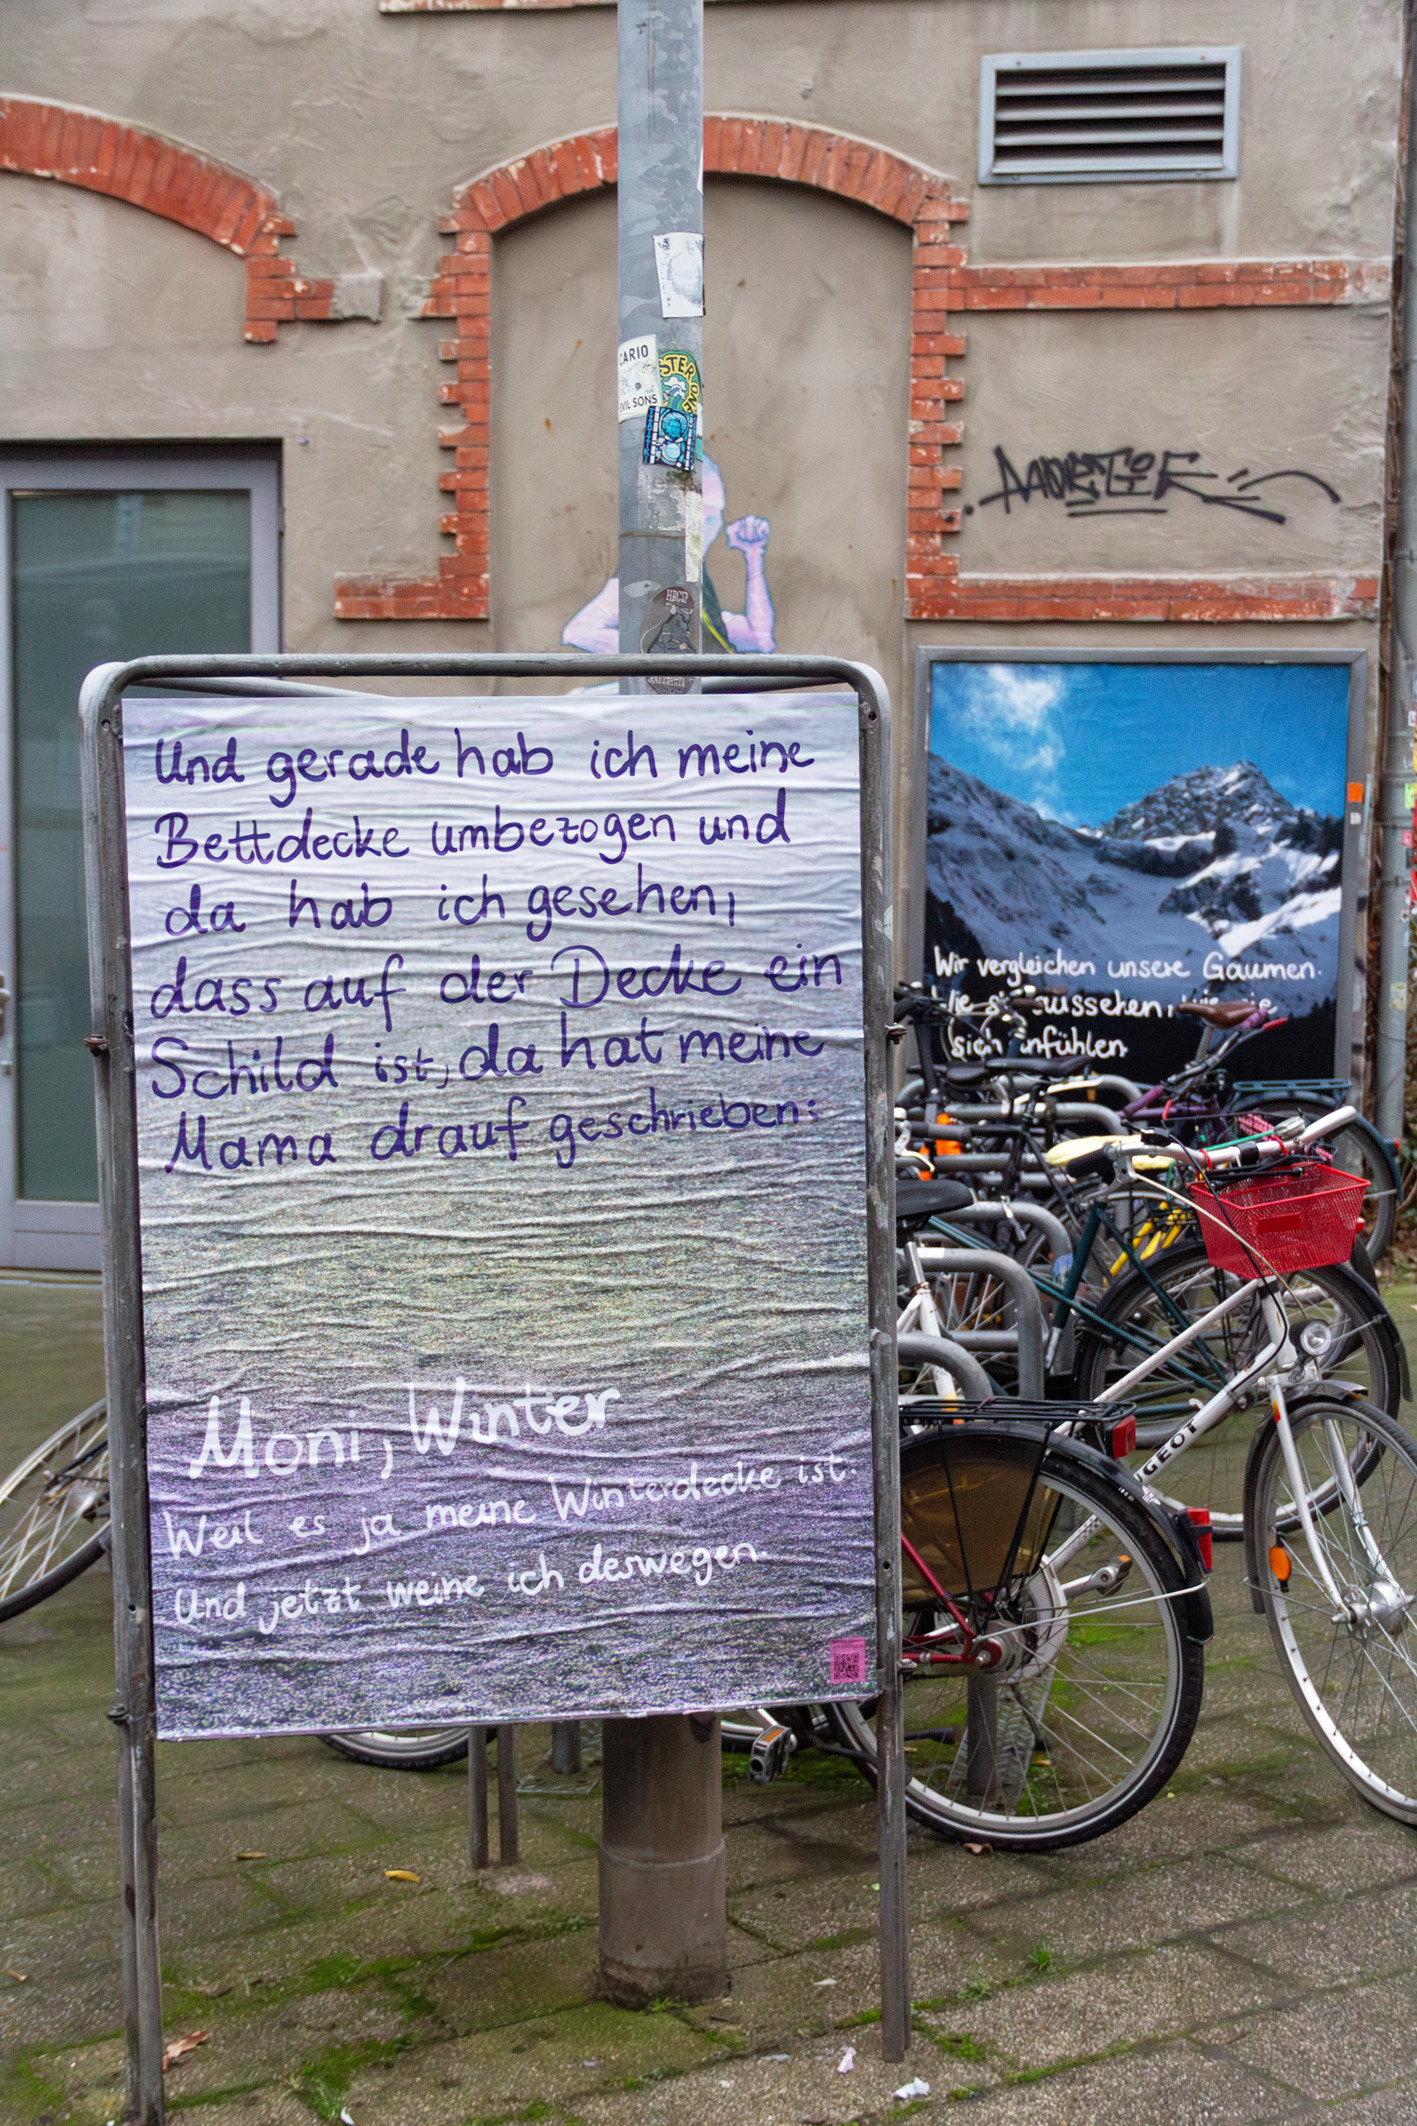 CARIO
EVIL SONS
STER
Und gerade hab ich meine
Bettdecke umbezogen und
da hab ich gesehen,
dass auf der Decke ein
Schild ist, da hat meine
Mama drauf geschrieben:
Moni, Winter
Weil es ja meine Winterdecke ist.
Und jetzt weine ich deswegen.
Wir vergleichen unsere Gaumen.
Wie sie aussehen, wie sie
sich anfühlen.